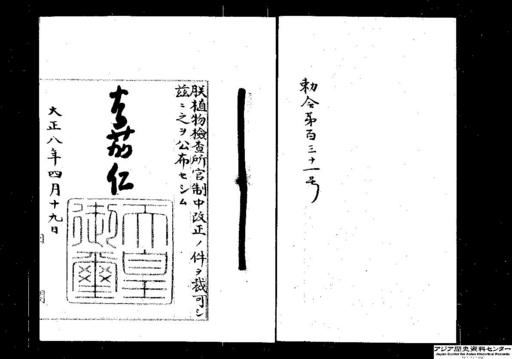 勅令第百三十一号
朕植物檢査所官制中改正ノ件ヲ裁可シ
茲ニ之ヲ公布セシム
嘉仁
天皇
御璽
大正八年四月十九日
アジア歴史資料センター
Japan Center for Asian Historical Records